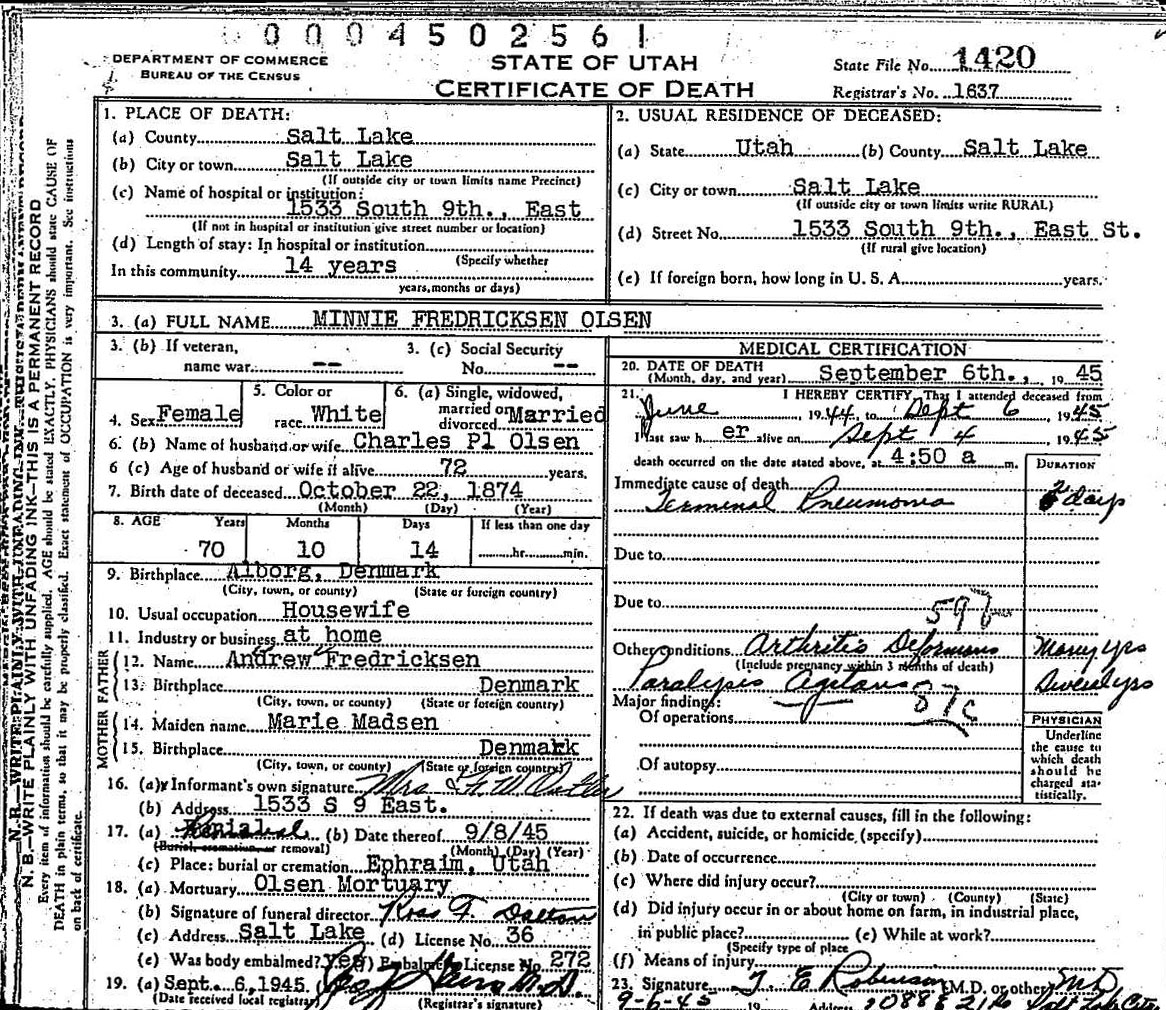 0004502561
DEPARTMENT OF COMMERCE
BUREAU OF THE CENSUS
STATE OF UTAH
CERTIFICATE OF DEATH
State File No. 1420
Registrar's No. 1637
N. B.—WRITE PLAINLY WITH UNFADING INK—THIS IS A PERMANENT RECORD
Every item of information should be carefully supplied. AGE should be stated EXACTLY. PHYSICIANS should state CAUSE OF
DEATH in plain terms, so that it may be properly classified. Exact statement of OCCUPATION is very important. See instructions
on back of certificate.
1. PLACE OF DEATH:
(a) County Salt Lake
(b) City or town Salt Lake
(If outside city or town limits name Precinct)
(c) Name of hospital or institution:
1533 South 9th., East
(If not in hospital or institution give street number or location)
(d) Length of stay: In hospital or institution
(Specify whether
In this community 14 years
years, months or days)
2. USUAL RESIDENCE OF DECEASED:
(a) State Utah (b) County Salt Lake
(c) City or town Salt Lake
(If outside city or town limits write RURAL)
(d) Street No. 1533 South 9th., East St.
(If rural give location)
(e) If foreign born, how long in U. S. A. years.
3. (a) FULL NAME MINNIE FREDRICKSEN OLSEN
3. (b) If veteran, 3. (c) Social Security
name war -- No. --
5. Color or 6. (a) Single, widowed,
4. Sex Female race White married or divorced Married
6. (b) Name of husband or wife Charles Pl Olsen
6 (c) Age of husband or wife if alive 72 years.
7. Birth date of deceased October 22, 1874
(Month) (Day) (Year)
8. AGE Years Months Days If less than one day
70 10 14 hr. min.
9. Birthplace Alborg, Denmark
(City, town, or county) (State or foreign country)
10. Usual occupation Housewife
11. Industry or business at home
FATHER
12. Name Andrew Fredricksen
13. Birthplace Denmark
(City, town, or county) (State or foreign country)
MOTHER
14. Maiden name Marie Madsen
15. Birthplace Denmark
(City, town, or county) (State or foreign country)
16. (a) Informant's own signature Mrs
(b) Address 1533 S 9 East.
17. (a) (b) Date thereof 9/8/45
(Burial, cremation, or removal) (Month) (Day) (Year)
(c) Place: burial or cremation Ephraim, Utah
18. (a) Mortuary Olsen Mortuary
(b) Signature of funeral director Ross F. Dalton
(c) Address Salt Lake (d) License No. 36
(e) Was body embalmed? Yes (f) Embalmer License No. 272
19. (a) Sept. 6, 1945
(Date received local registrar) (Registrar's signature)
MEDICAL CERTIFICATION
20. DATE OF DEATH
(Month, day, and year) September 6th., 19 45
21. I HEREBY CERTIFY, That I attended deceased from
June, 19 44, to Sept 6, 19 45
I last saw h er alive on Sept 4 19 45
death occurred on the date stated above, at 4:50 a m. DURATION
Immediate cause of death
Terminal Pneumonia 2 days
Due to
Due to
Other conditions Arthritis Deformans Many yrs
(Include pregnancy within 3 months of death)
Paralysis Agitans 87c Several yrs
Major findings:
Of operations
Of autopsy
PHYSICIAN
Underline
the cause to
which death
should be
charged sta-
tistically.
22. If death was due to external causes, fill in the following:
(a) Accident, suicide, or homicide (specify)
(b) Date of occurrence
(c) Where did injury occur?
(City or town) (County) (State)
(d) Did injury occur in or about home on farm, in industrial place,
in public place? (e) While at work?
(Specify type of place
(f) Means of injury
23. Signature T E Robinson (M.D. or other) MD
9-6-45 19 Address Salt Lake City